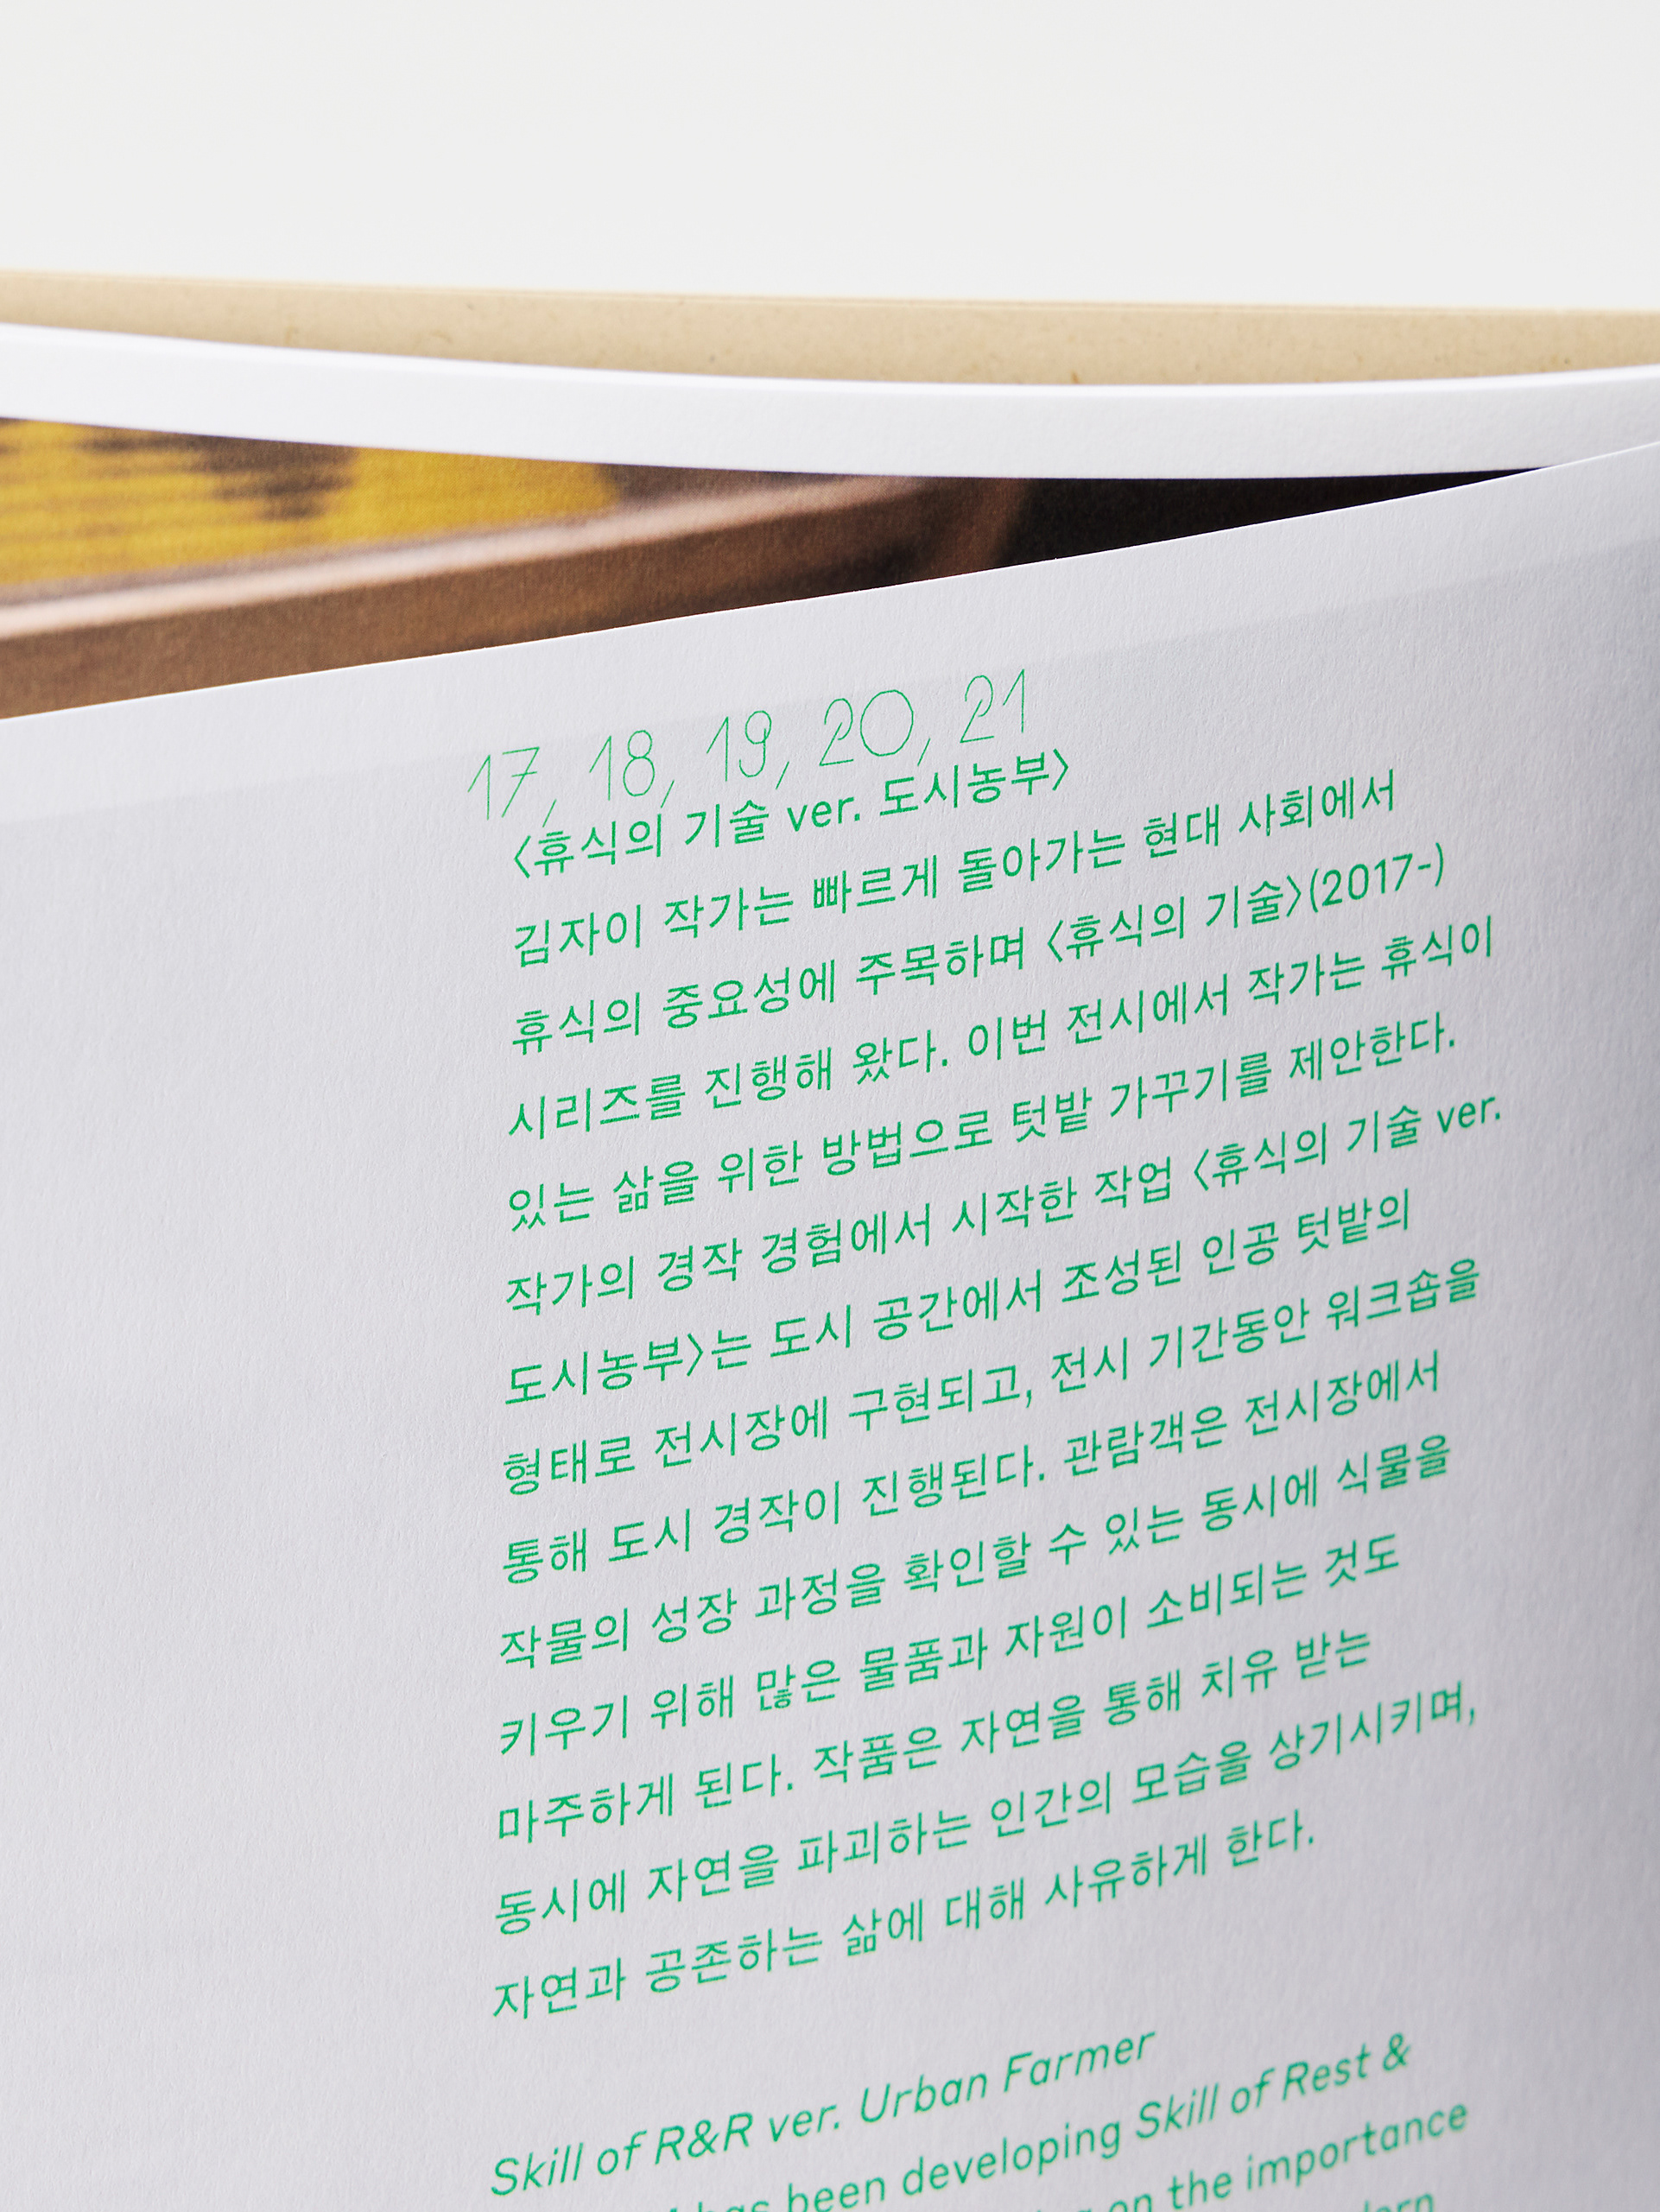 17, 18, 19, 20, 21
〈휴식의 기술 ver. 도시농부〉
김자이 작가는 빠르게 돌아가는 현대 사회에서
휴식의 중요성에 주목하며 〈휴식의 기술〉(2017-)
시리즈를 진행해 왔다. 이번 전시에서 작가는 휴식이
있는 삶을 위한 방법으로 텃밭 가꾸기를 제안한다.
작가의 경작 경험에서 시작한 작업 〈휴식의 기술 ver.
도시농부〉는 도시 공간에서 조성된 인공 텃밭의
형태로 전시장에 구현되고, 전시 기간동안 워크숍을
통해 도시 경작이 진행된다. 관람객은 전시장에서
작물의 성장 과정을 확인할 수 있는 동시에 식물을
키우기 위해 많은 물품과 자원이 소비되는 것도
마주하게 된다. 작품은 자연을 통해 치유 받는
동시에 자연을 파괴하는 인간의 모습을 상기시키며,
자연과 공존하는 삶에 대해 사유하게 한다.
Skill of R&R ver. Urban Farmer
has been developing Skill of Rest &
on the importance